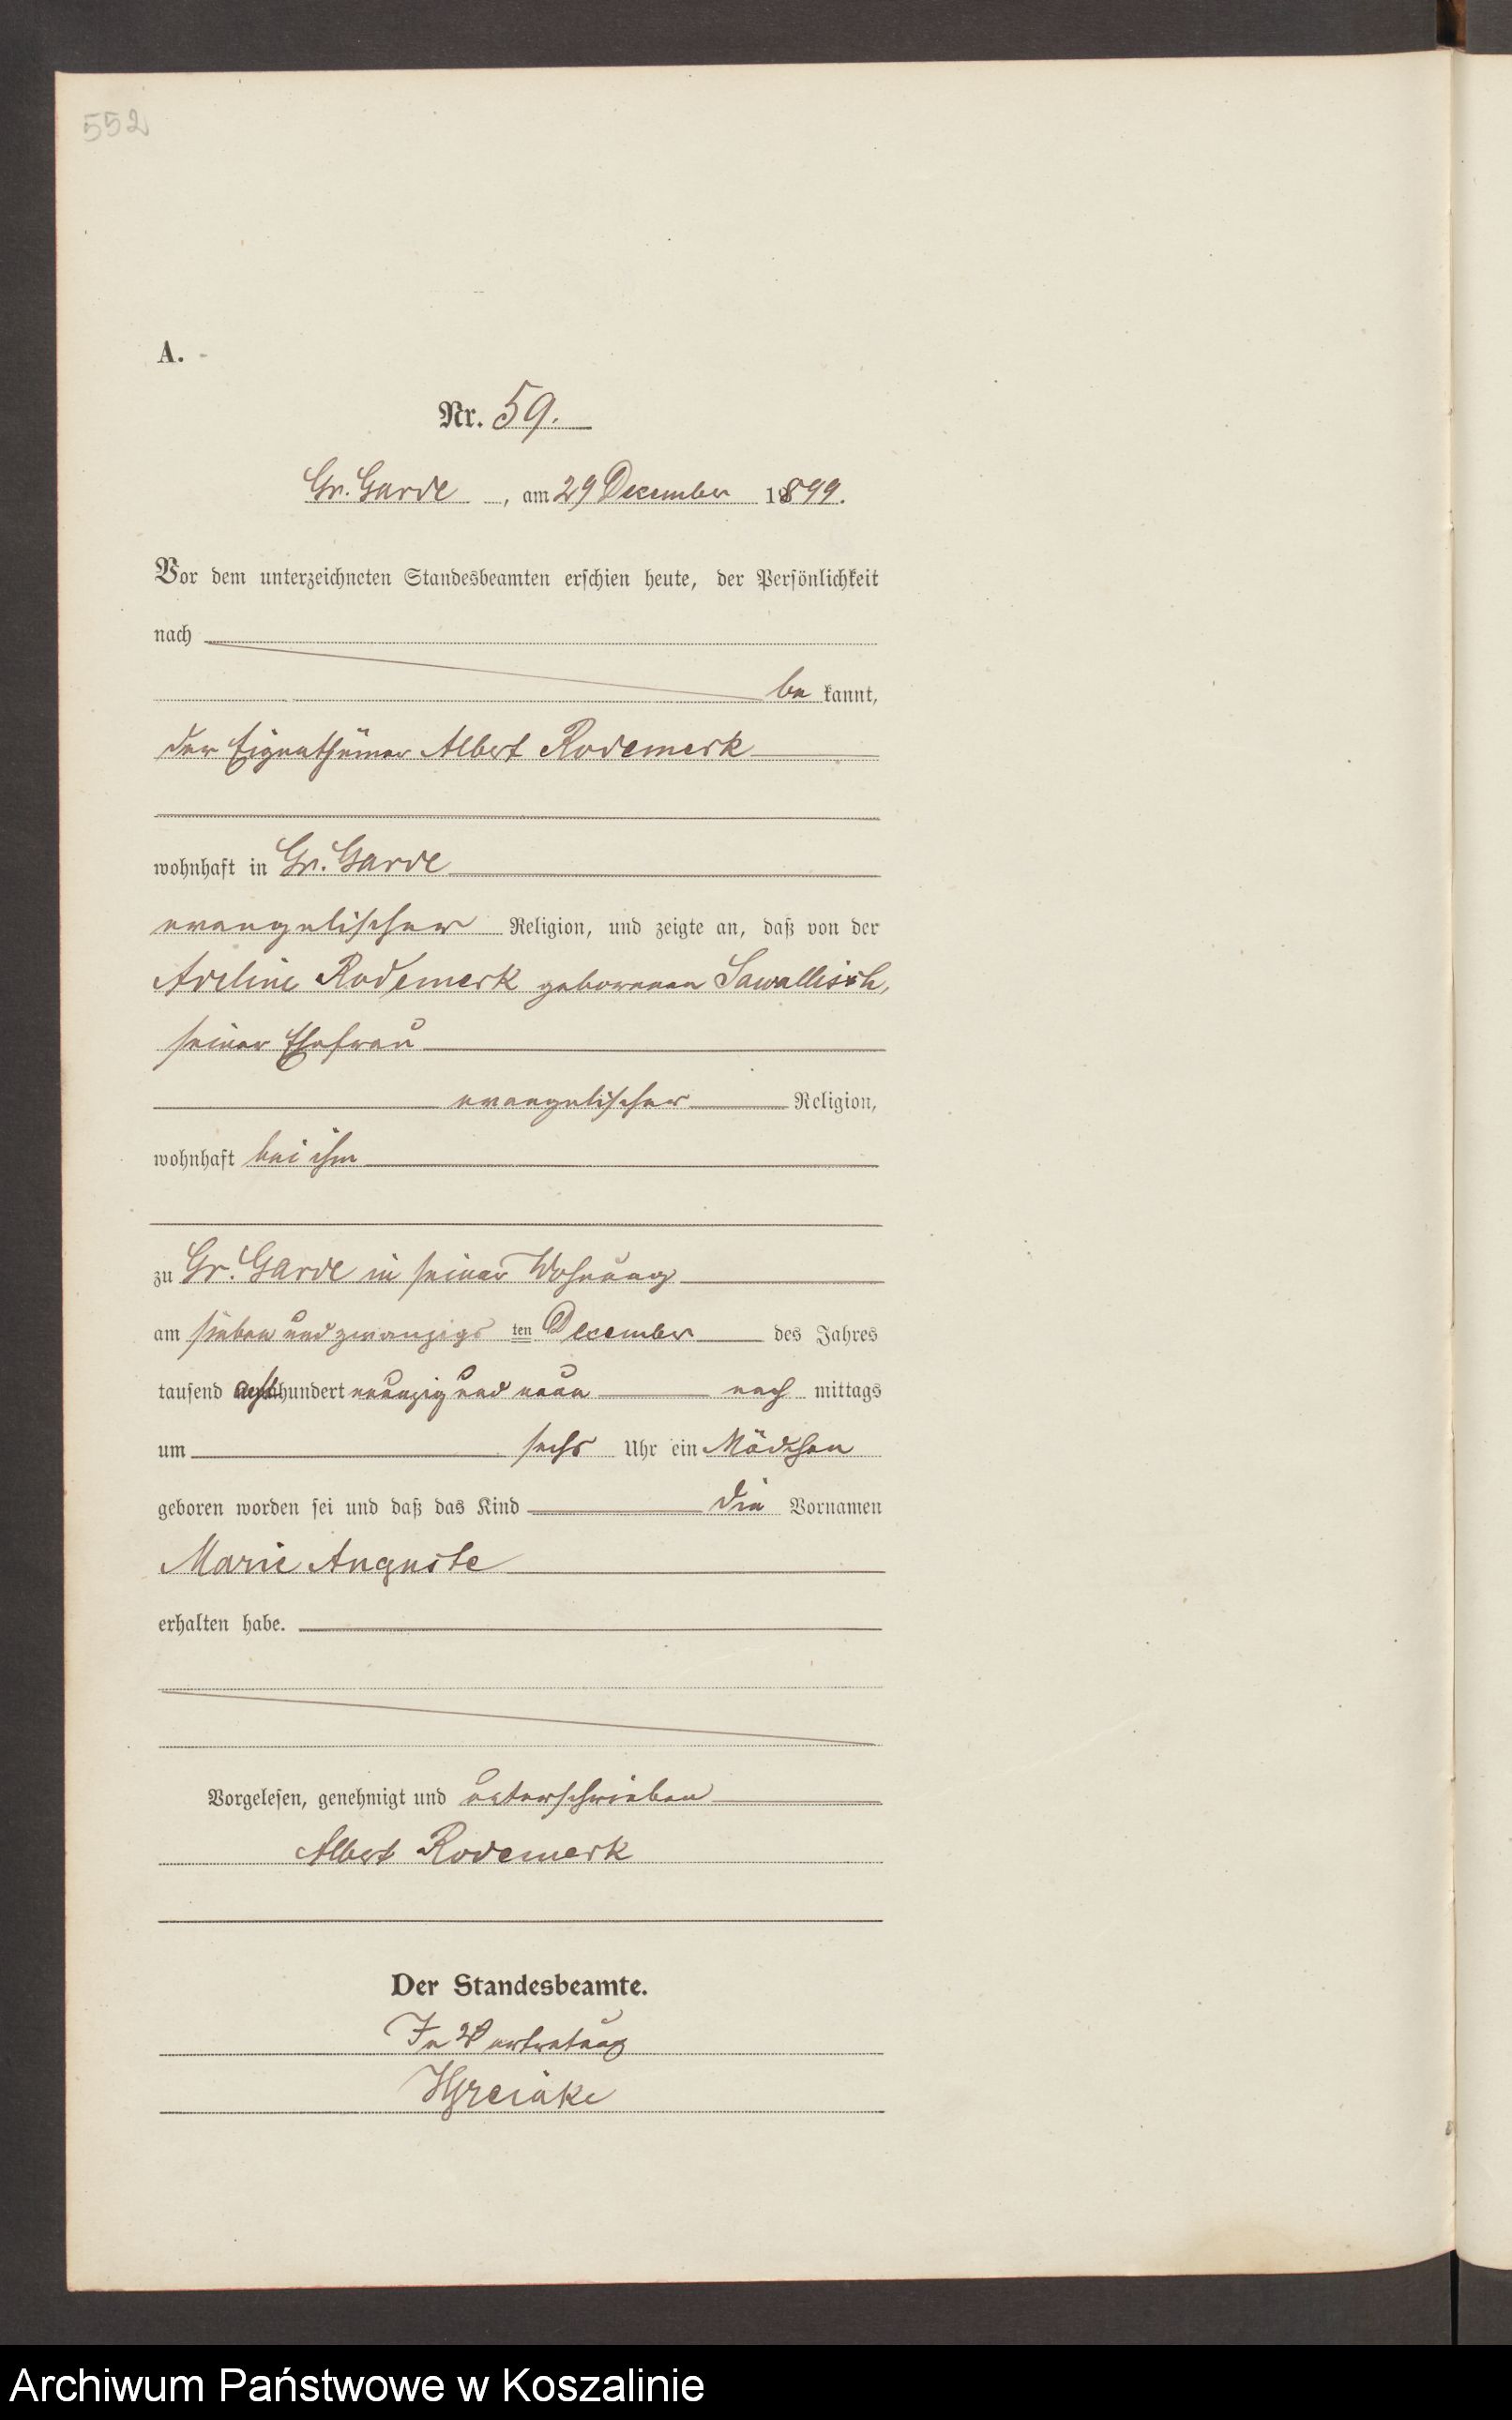 552
A.
Nr. 59.
Gr. Garde, am 29 December 1899.
Vor dem unterzeichneten Standesbeamten erschien heute, der Persönlichkeit
nach
be kannt,
der Eigenthümer Albert Rodemerk
wohnhaft in Gr. Garde
evangelischer Religion, und zeigte an, daß von der
Adeline Rodemerk geborenen Sawallisch,
seiner Ehefrau
evangelischer Religion,
wohnhaft bei ihm
zu Gr. Garde in seiner Wohnung
am sieben und zwanzigs ten December des Jahres
tausend achthundert neunzig und neun nach mittags
um sechs Uhr ein Mädchen
geboren worden sei und daß das Kind die Vornamen
Marie Auguste
erhalten habe.
Vorgelesen, genehmigt und unterschrieben
Albert Rodemerk
Der Standesbeamte.
In Vertretung
Archiwum Państwowe w Koszalinie